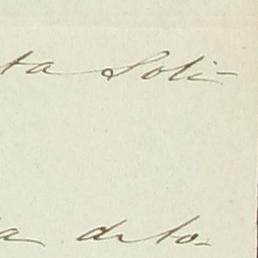 ta Soli-
a de to-